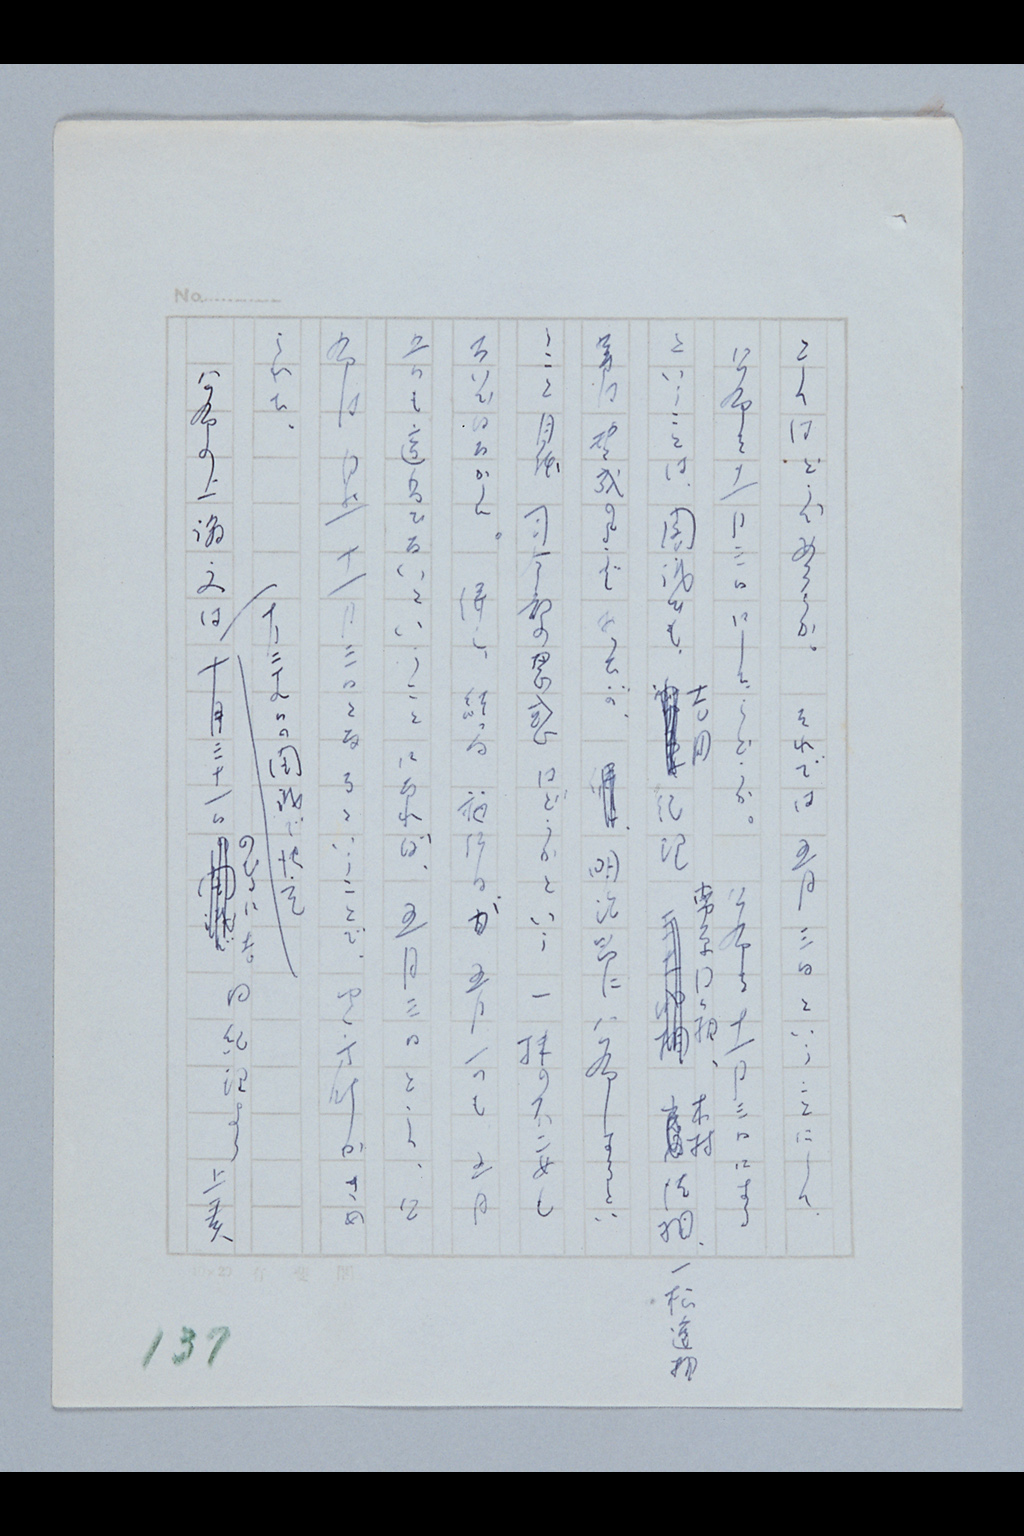 No.
これはどうであろうか。それでは五月三日ということにし、
公布を十一月三日にしたらどうか。公布を十一月三日にする
ということは、閣議でも、吉田総理 幣原国務相、木村法相、一松逓相
等は賛成のようであったが、明治節に公布するとい
うこと自体 司令部の思惑はどうかという一抹の不安も
ないではなかった。併し、結局 施行日が五月一日も五月
五日も適当でないということになれば、五月三日という、公
布は 自然 十一月三日となるということで、
られた。
十月二十九日の閣議で決定
公布の上諭文は 十月三十一日 のひるに吉田総理より上奏
10×20 有斐閣
137